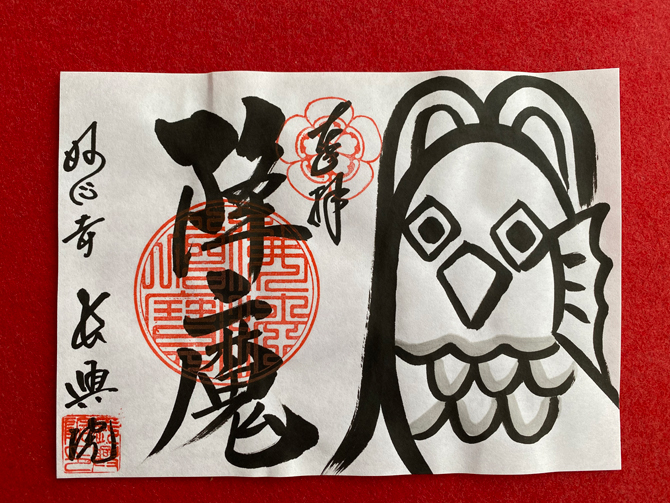 奉拝
降魔
妙心寺 長興院